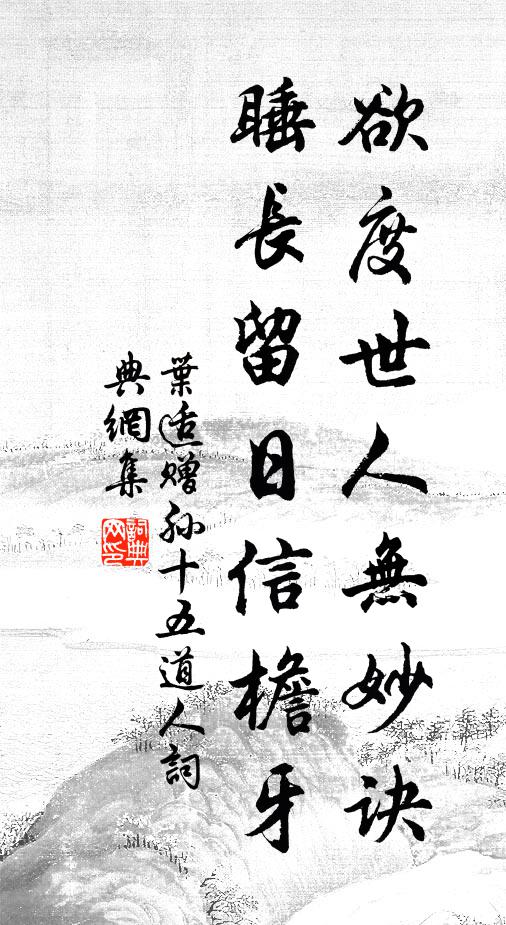 欲度世人無妙訣
睡長留日信檐牙
葉适贈孙十五道人詞
典網集
詞典
网印